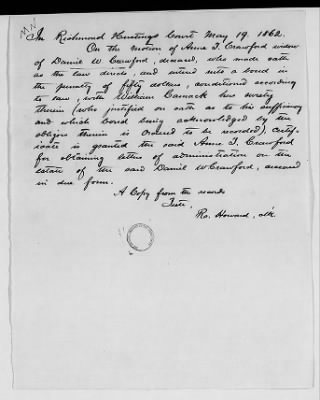 In Richmond Hustings Court May 19. 1862.
On the motion of Anne T. Crawford widow
of Daniel W Crawford, deceased, who made oath
as the law directs, and entered into a bond in
the penalty of fifty dollars, conditioned according
to law, with William Cannack her surety
therein (who justified on oath as to his sufficiency
and which bond being acknowledged by the
obligors therein is ordered to be recorded), certif-
icate is granted the said Anne T. Crawford
for obtaining letters of administration on the
estate of the said Daniel W Crawford, deceased
in due form.
A Copy from the records
Teste,
Ro. Howard, clk.